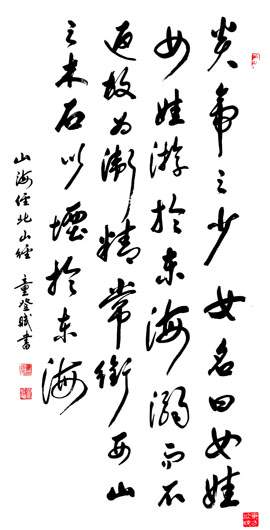 炎帝之少女名曰女娃
女娃游於東海溺而不
返故为衛精常銜西山
之木石以堙於東海
山海经北山經 童登賦書